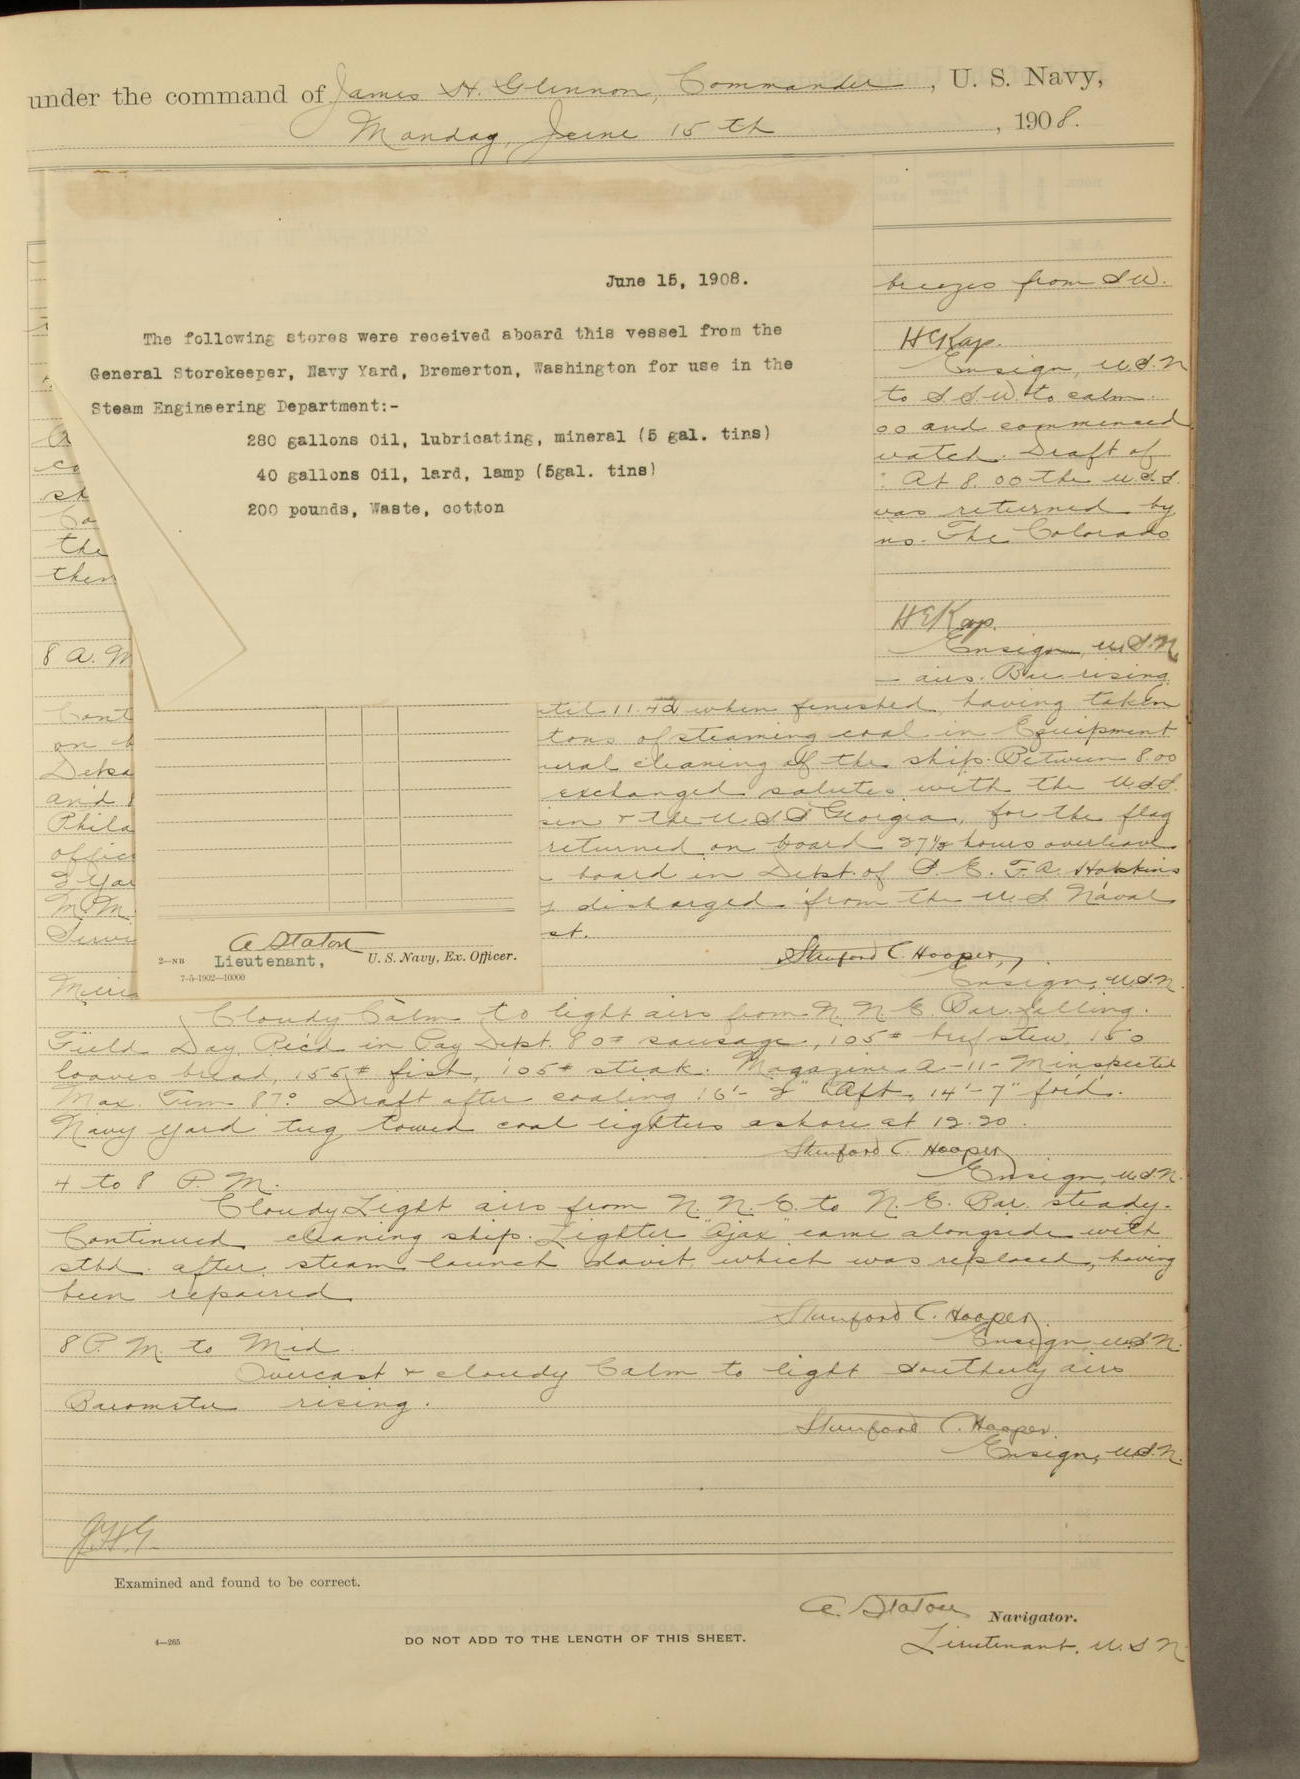 under the command of James H. Glennon, Commander, U. S. Navy,
Monday, June 15th, 1908.
June 15, 1908.
The following stores were received aboard this vessel from the
General Storekeeper, Navy Yard, Bremerton, Washington for use in the
Steam Engineering Department:-
280 gallons Oil, lubricating, mineral (5 gal. tins)
40 gallons Oil, lard, lamp (5gal. tins)
200 pounds, Waste, cotton
breezes from S.W.
H E Kays.
Ensign, U.S.N
to S.S.W. to calm.
00 and commenced
watch. Draft of
: At 8.00 the U.S.S.
was returned by
ns. The Colorado
the
then
H E Kays.
Ensign, U.S.N
8 A. M
airs. Bar rising
Cont
ntil 11.42 when finished, having taken
on b
tons of steaming coal in Equipment
neral cleaning of the ship. Between 8.00
and
exchanged salutes with the U.S.S.
Phila
sin & the U.S.S. Georgia, for the flag
offic
returned on board 27½ hours overleave
board in Dept. of P. E. F. A. Hopkins
discharged from the U.S. Naval
st.
A Staton
Lieutenant, U. S. Navy, Ex. Officer.
2—NB
7-5-1902—10000
Stanford C. Hooper,
Ensign, U.S.N.
Meri
Cloudy Calm to light airs from N.N.E. Bar. falling.
Field Day. Rec'd in Pay Dept. 80# sausage, 105# beef stew, 150
loaves bread, 155# fish, 105# steak. Magazine A-11-M inspected
Max. Tem 87°. Draft after coaling 16'-2" Aft, 14'-7" for'd.
Navy yard tug towed coal lighters ashore at 12.20.
Stanford C. Hooper
Ensign, U.S.N.
4 to 8 P. M.
Cloudy Light airs from N.N.E. to N.E. Bar. steady.
Continued cleaning ship. Lighter "Ajax" came alongside with
stbd. after steam launch davit which was replaced, having
been repaired
Stanford C. Hooper.
Ensign U.S.N.
8 P. M. to Mid.
Overcast & cloudy Calm to light southerly airs
Barometer rising.
Stanford C. Hooper.
Ensign, U.S.N.
J.H.G.
Examined and found to be correct.
A. Staton Navigator.
4—265
DO NOT ADD TO THE LENGTH OF THIS SHEET.
Lieutenant, U.S.N